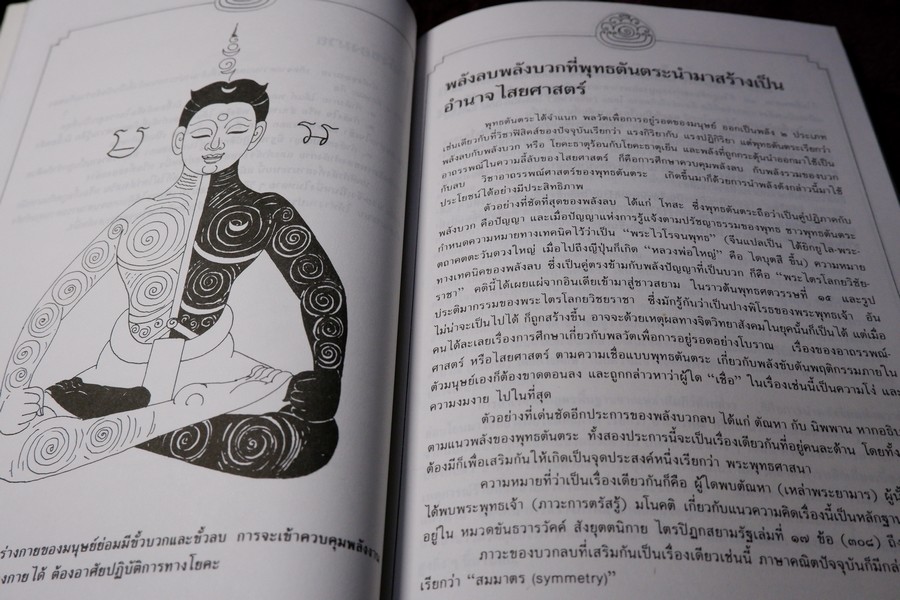 ร่างกายของมนุษย์ย่อมมีขั้วบวกและขั้วลบ การจะเข้าควบคุมพลังงาน
งกายได้ ต้องอาศัยปฏิบัติการทางโยคะ
พลังลบพลังบวกที่พุทธตันตระนำมาสร้างเป็น
อำนาจ ไสยศาสตร์
พุทธตันตระได้จำแนก พลวัตเพื่อการอยู่รอดของมนุษย์ ออกเป็นพลัง ๒ ประเภท
เช่นเดียวกับที่วิชาฟิสิคส์ของปัจจุบันเรียกว่า แรงกิริยากับ แรงปฏิกิริยา แต่พุทธตันตระเรียกว่า
พลังลบกับพลังบวก หรือ โยคะธาตุร้อนกับโยคะธาตุเย็น และพลังที่ถูกกระตุ้นนำออกมาใช้เป็น
อาถรรพณ์ในความลี้ลับของไสยศาสตร์ ก็คือการศึกษาควบคุมพลังลบ กับพลังรวมของบวก
กับลบ วิชาอาถรรพณ์ศาสตร์ของพุทธตันตระ เกิดขึ้นมาก็ด้วยการนำพลังดังกล่าวนี้มาใช้
ประโยชน์ได้อย่างมีประสิทธิภาพ
ตัวอย่างที่ชัดที่สุดของพลังลบ ได้แก่ โทสะ ซึ่งพุทธตันตระถือว่าเป็นคู่ปฏิภาคกับ
พลังบวก คือปัญญา และเมื่อปัญญาแห่งการรู้แจ้งตามปรัชญาธรรมของพุทธ ชาวพุทธตันตระ
กำหนดความหมายทางเทคนิคไว้ว่าเป็น “พระไวโรจนพุทธ” (จีนแปลเป็น ได้ยิกยูไล-พระ-
ตถาคตตะวันดวงใหญ่ เมื่อไปถึงญี่ปุ่นก็เกิด “หลวงพ่อใหญ่” คือ ไดบุตสึ ขึ้น) ความหมาย
ทางเทคนิคของพลังลบ ซึ่งเป็นคู่ตรงข้ามกับพลังปัญญาที่เป็นบวก ก็คือ “พระไตรโลกยวิชัย-
ราชา” คตินี้ได้เผยแผ่จากอินเดียเข้ามาสู่ชาวสยาม ในราวต้นพุทธศตวรรษที่ ๑๕ และรูป
ประติมากรรมของพระไตรโลกยวิชยราชา ซึ่งมักรู้กันว่าเป็นปางพิโรธของพระพุทธเจ้า อัน
ไม่น่าจะเป็นไปได้ ก็ถูกสร้างขึ้น อาจจะด้วยเหตุผลทางจิตวิทยาสังคมในยุคนั้นก็เป็นได้ แต่เมื่อ
คนได้ละเลยเรื่องการศึกษาเกี่ยวกับพลวัตเพื่อการอยู่รอดอย่างโบราณ เรื่องของอาถรรพณ์-
ศาสตร์ หรือไสยศาสตร์ ตามความเชื่อแบบพุทธตันตระ เกี่ยวกับพลังขับดันพฤติกรรมภายใน
ตัวมนุษย์เองก็ต้องขาดตอนลง และถูกกล่าวหาว่าผู้ใด “เชื่อ” ในเรื่องเช่นนี้เป็นความโง่ และ
ความงมงาย ไปในที่สุด
ตัวอย่างที่เด่นชัดอีกประการของพลังบวกลบ ได้แก่ ตัณหา กับ นิพพาน หากอธิบ
ตามแนวพลังของพุทธตันตระ ทั้งสองประการนี้จะเป็นเรื่องเดียวกันที่อยู่คนละด้าน โดยทั้ง
ต้องมีก็เพื่อเสริมกันให้เกิดเป็นจุดประสงค์หนึ่งเรียกว่า พระพุทธศาสนา
ความหมายที่ว่าเป็นเรื่องเดียวกันก็คือ ผู้ใดพบตัณหา (เหล่าพระยามาร) ผู้นั้
ได้พบพระพุทธเจ้า (ภาวะการตรัสรู้) มโนคติ เกี่ยวกับแนวความคิดเรื่องนี้เป็นหลักฐาน
อยู่ใน หมวดขันธวารวัคค์ สังยุตตนิกาย ไตรปิฎกสยามรัฐเล่มที่ ๑๗ ข้อ (๓๐๘) ถึง
ภาวะของบวกลบที่เสริมกันเป็นเรื่องเดียวเช่นนี้ ภาษาคณิตปัจจุบันก็มีกล่
เรียกว่า “สมมาตร (symmetry)”